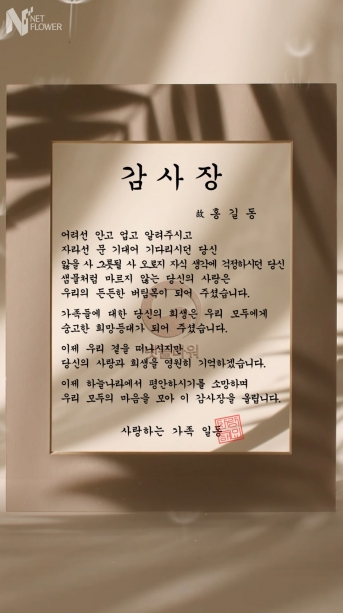 NET
FLOWER
감사장
故 홍길동
어려선 안고 업고 알려주시고
자라선 문 기대어 기다리시던 당신
앓을 사 그릇될 사 오로지 자식 생각에 걱정하시던 당신
샘물처럼 마르지 않는 당신의 사랑은
우리의 든든한 버팀목이 되어 주셨습니다.
가족들에 대한 당신의 희생은 우리 모두에게
숭고한 희망등대가 되어 주셨습니다.
이제 우리 곁을 떠나시지만
당신의 사랑과 희생을 영원히 기억하겠습니다.
이제 하늘나라에서 평안하시기를 소망하며
우리 모두의 마음을 모아 이 감사장을 올립니다.
사랑하는 가족 일동